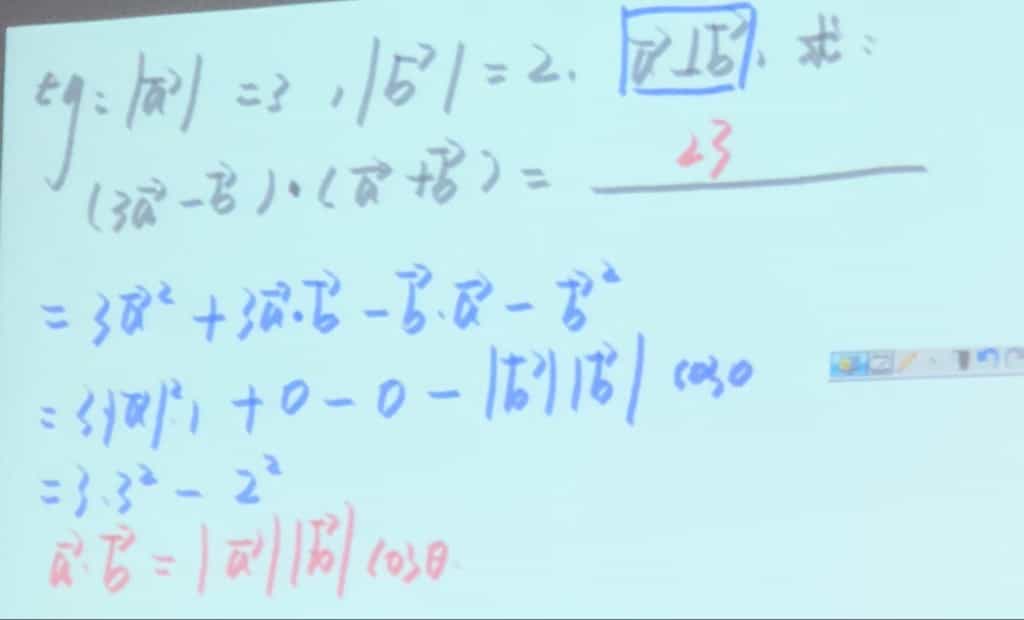 eg: |a⃗| = 3, |b⃗| = 2. a⃗⊥b⃗, 求:
(3a⃗ - b⃗)·(a⃗ + b⃗) = 23
= 3a⃗² + 3a⃗·b⃗ - b⃗·a⃗ - b⃗²
= 3|a⃗|² + 0 - 0 - |b⃗||b⃗| cos0
= 3·3² - 2²
a⃗·b⃗ = |a⃗||b⃗| cosθ